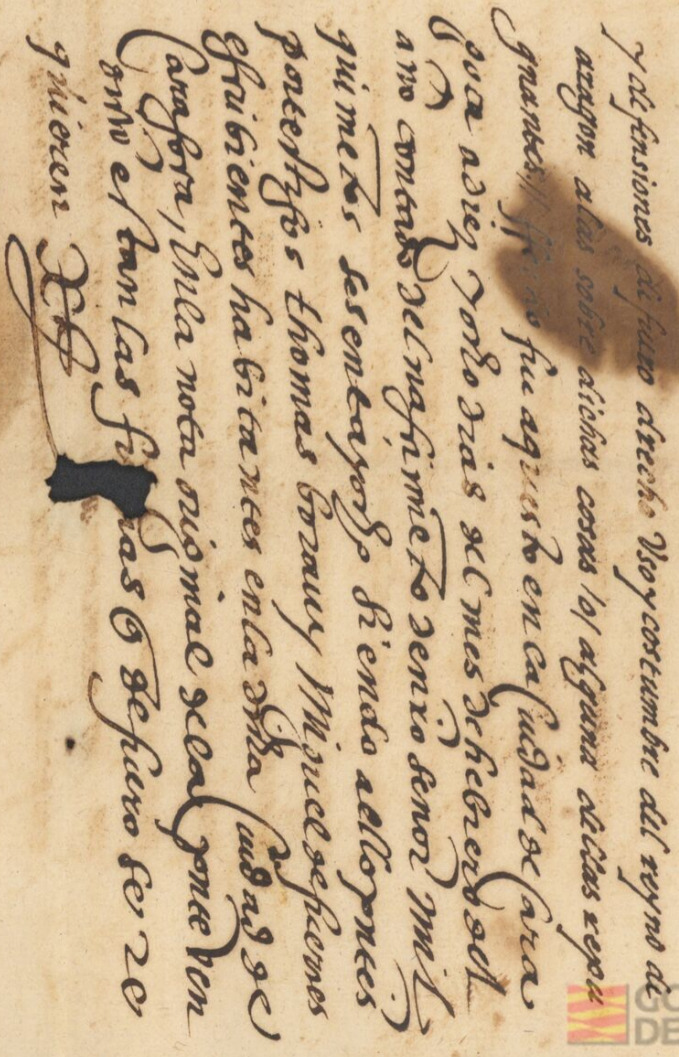 y difensiones di fuero drecho Uso y costumbre dil reyno di
aragon a las sobre dichas cosas /o/ alguna dellas repu
gnantes // ffecho fue aquesto en la Ciudad de Cara
goça a diez y ocho dias del mes de hebrero del
año contado del nascimieto de nro senor mil
quinietos sesenta y ocho siendo a ello pntes
por testigos thomas y Miguel de funes
escribientes habitantes en la dicha Ciudad de
Caragoça, En la nota original de la pnte ven
cion estan las firmas q de fuero se re
quieren
GO
DE